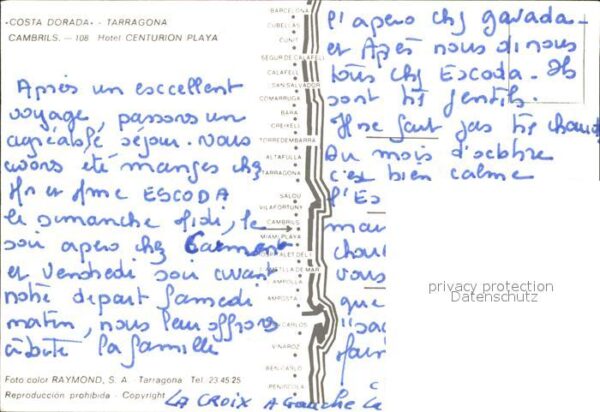 «COSTA DORADA» - TARRAGONA
CAMBRILS. — 108 Hotel CENTURION PLAYA
Après un exccellent
voyage, passons un
agréable séjour. Nous
avons été manges chez
Mr et Mme ESCODA
le dimanche Midi, le
soir apero chez Carment
et vendredi soir avant
notre depart Samedi
matin, nous leur offrons
à boire la famille
Foto color RAYMOND, S. A. - Tarragona Tel. 23 45 25
Reproducción prohibida - Copyright
BARCELONA
CUBELLAS
CUNIT
SEGUR DE CALAFELL
CALAFELL
SAN SALVADOR
COMARRUGA
BARA
CREIXELL
TORREDEMBARRA
ALTAFULLA
TARRAGONA
SALOU
VILAFORTUNY
CAMBRILS
MIAMI PLAYA
HOSPITALET DEL I
AMETLLA DE MAR
AMPOLLA
AMPOSTA
CARLOS
VINAROZ
BENICARLO
PEÑISCOLA
l'apero chez gavada
et Après nous dinons
tous chez Escoda. Ils
sont très gentils.
Il ne fait pas très chaud
Au mois d'octobre
c'est bien calme
l'Es
mai
chau
vous
que
"sac
fair
LA CROIX A Gauche La
privacy protection
Datenschutz